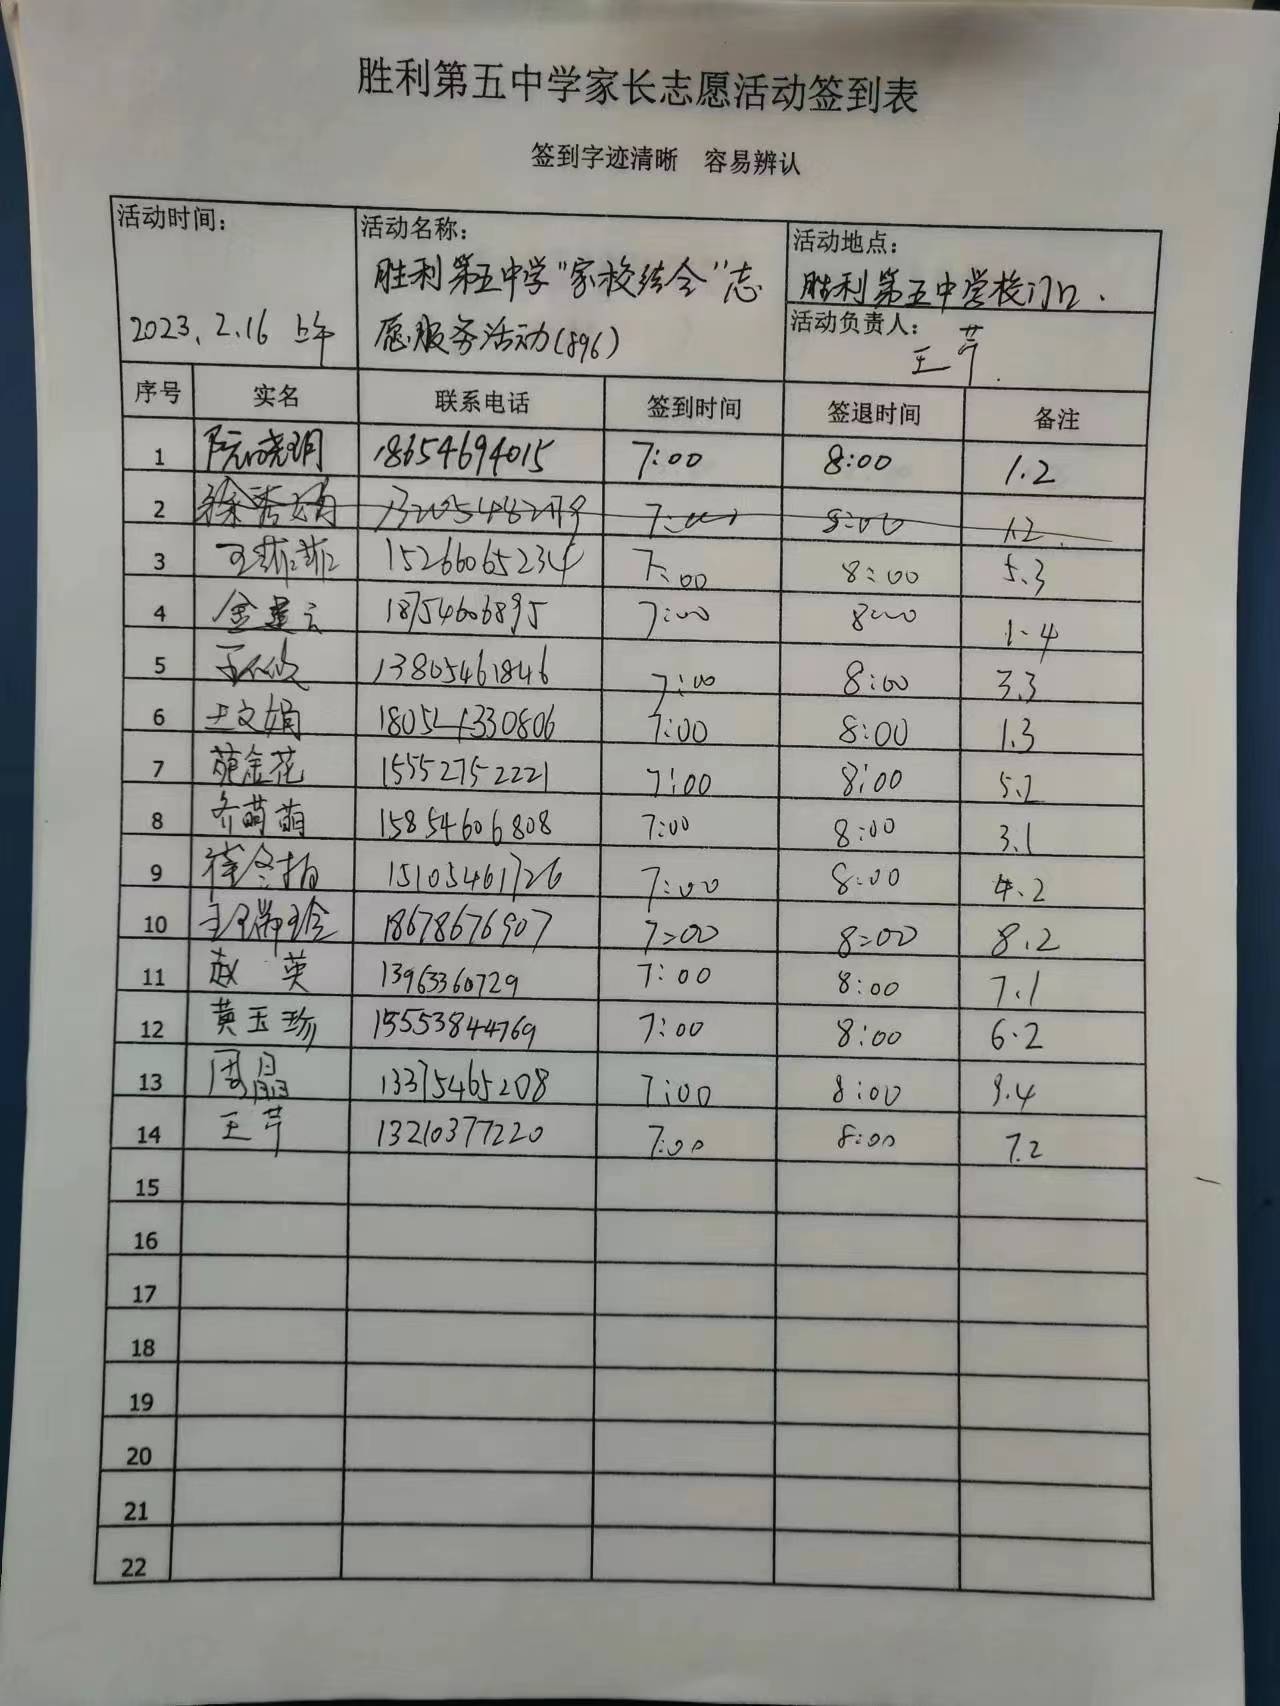 胜利第五中学家长志愿活动签到表
签到字迹清晰 容易辨认
活动时间:
2023.2.16 上午
活动名称:
胜利第五中学“家校结合”志
愿服务活动(896)
活动地点:
胜利第五中学校门口.
活动负责人:
王芹.
序号 实名 联系电话 签到时间 签退时间 备注
1 阮晓玥 18654694015 7:00 8:00 1.2
2 徐秀娟 7:00 8:00 1.2
3 王菲菲 15266065234 7:00 8:00 5.3
4 金 云 18754606895 7:00 8:00 1.4
5 13805461846 7:00 8:00 3.3
6 王文娟 7:00 8:00 1.3
7 金花 15552752221 7:00 8:00 5.2
8 齐萌萌 15854606808 7:00 8:00 3.1
9 15105461726 7:00 8:00 4.2
10 王瑞玲 18678676907 7:00 8:00 8.2
11 赵英 13963360729 7:00 8:00 7.1
12 黄玉珍 15553844769 7:00 8:00 6.2
13 周晶 13375465208 7:00 8:00 9.4
14 王芹 13210377220 7:00 8:00 7.2
15
16
17
18
19
20
21
22